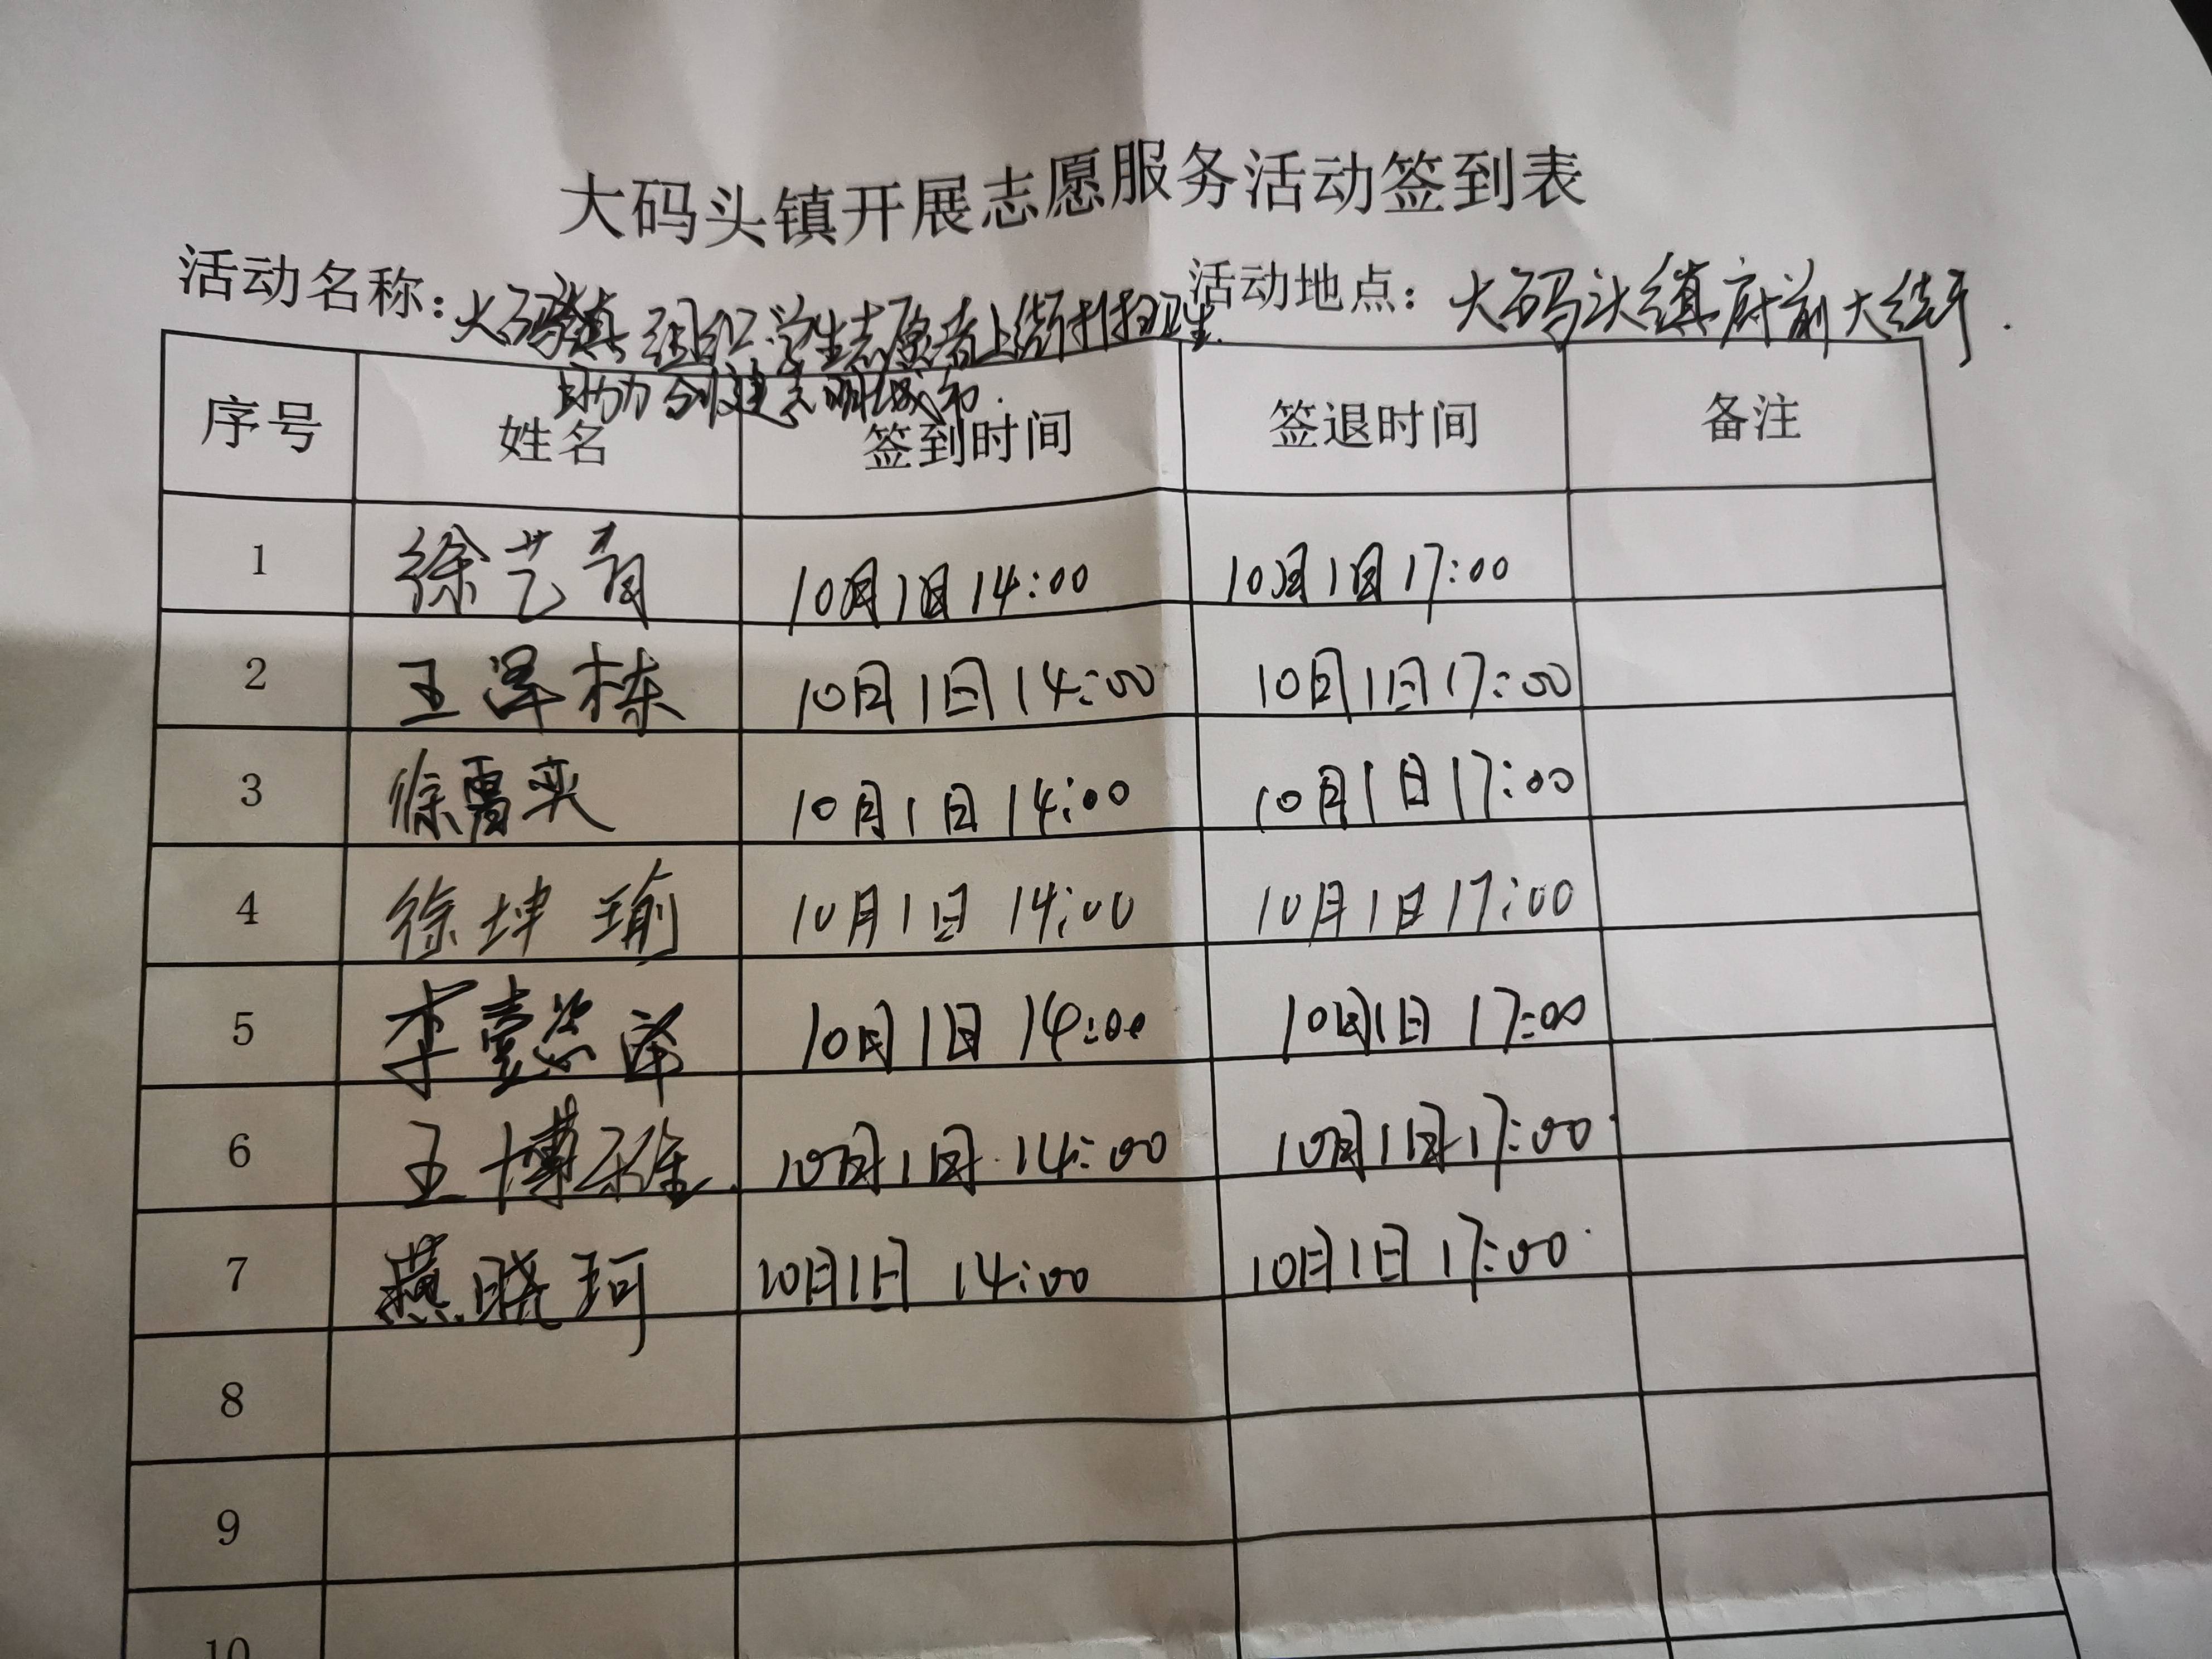 大码头镇开展志愿服务活动签到表
活动名称：大码头镇组织学生志愿者上街打扫卫生 活动地点：大码头镇府前大街.
助力创建文明城市.
序号 姓名 签到时间 签退时间 备注
1 徐艺育 10月1日14:00 10月1日17:00
2 王泽栋 10月1日14:00 10月1日17:00
3 徐 奕 10月1日14:00 10月1日17:00
4 徐坤瑜 10月1日14:00 10月1日17:00
5 李懿洋 10月1日14:00 10月1日17:00
6 王博 10月1日14:00 10月1日17:00
7 燕晓珂 10月1日14:00 10月1日17:00
8
9
10